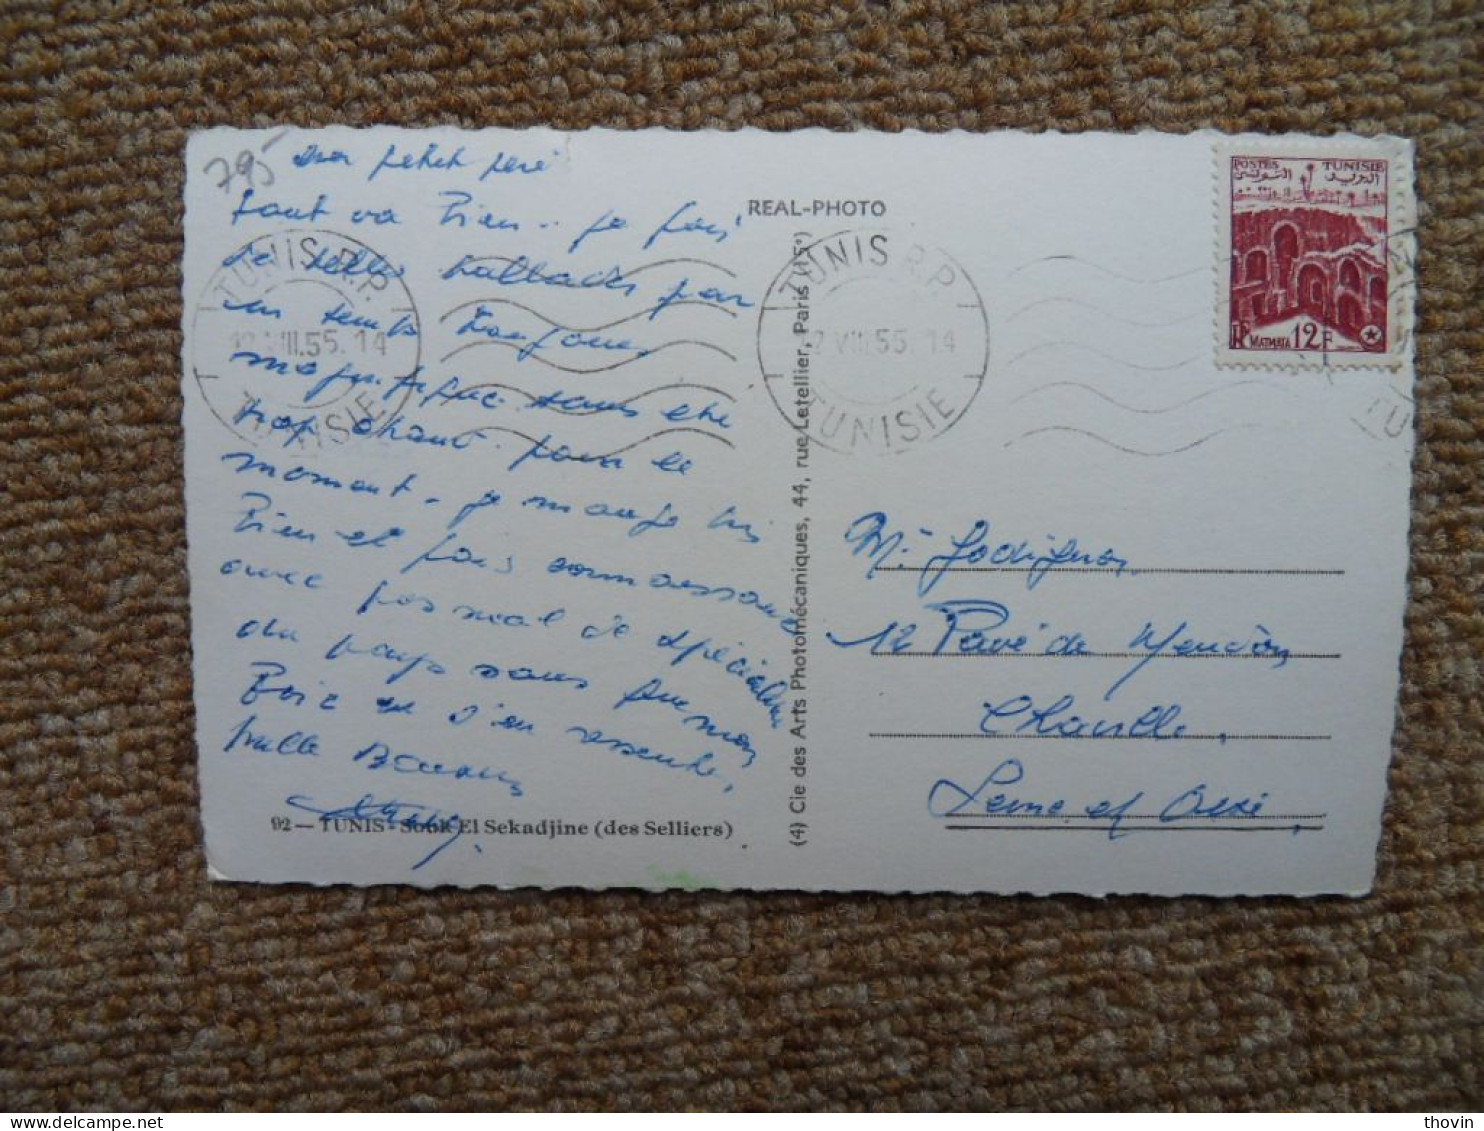 795
petit père
tout va bien.. je fais
de belles ballades par
un temps toujours
magnifique sans être
trop chaud pour le
moment. je mange très
bien et fais connaissance
avec pas mal de spécialités
du pays sans que mon
foie s'en ressente,
mille Baisers
92 — TUNIS - Souk El Sekadjine (des Selliers)
REAL-PHOTO
(4) Cie des Arts Photomécaniques, 44, rue Letellier, Paris (15e)
TUNIS R.P.
12 VIII.55. 14
TUNISIE
TUNIS R.P.
12 VIII.55. 14
TUNISIE
POSTES TUNISIE
البريد التونسي
RF MATMATA 12F
Mr Jodignon
12 Pavé de Meudon
Chaville.
Seine et Oise
thovin